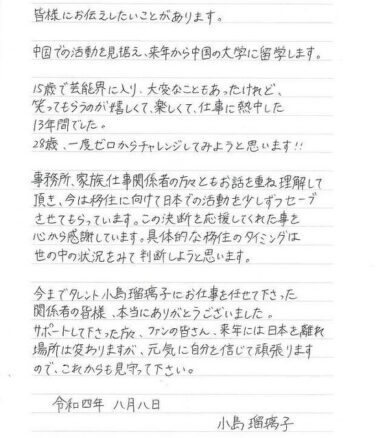 皆様にお伝えしたいことがあります。
中国での活動を見据え、来年から中国の大学に留学します。
15歳で芸能界に入り、大変なこともあったけれど、
笑ってもらうのが嬉しくて、楽しくて、仕事に熱中した
13年間でした。
28歳、一度ゼロからチャレンジしてみようと思います!!
事務所、家族、仕事関係者の方々ともお話を重ね理解して
頂き、今は移住に向けて日本での活動を少しずつセーブ
させてもらっています。この決断を応援してくれた事を
心から感謝しています。具体的な移住のタイミングは
世の中の状況をみて判断しようと思います。
今までタレント小島瑠璃子にお仕事を任せて下さった
関係者の皆様、本当にありがとうございました。
サポートして下さった方々、ファンの皆さん、来年には日本を離れ
場所は変わりますが、元気に自分を信じて頑張ります
ので、これからも見守って下さい。
令和四年 八月八日
小島 瑠璃子